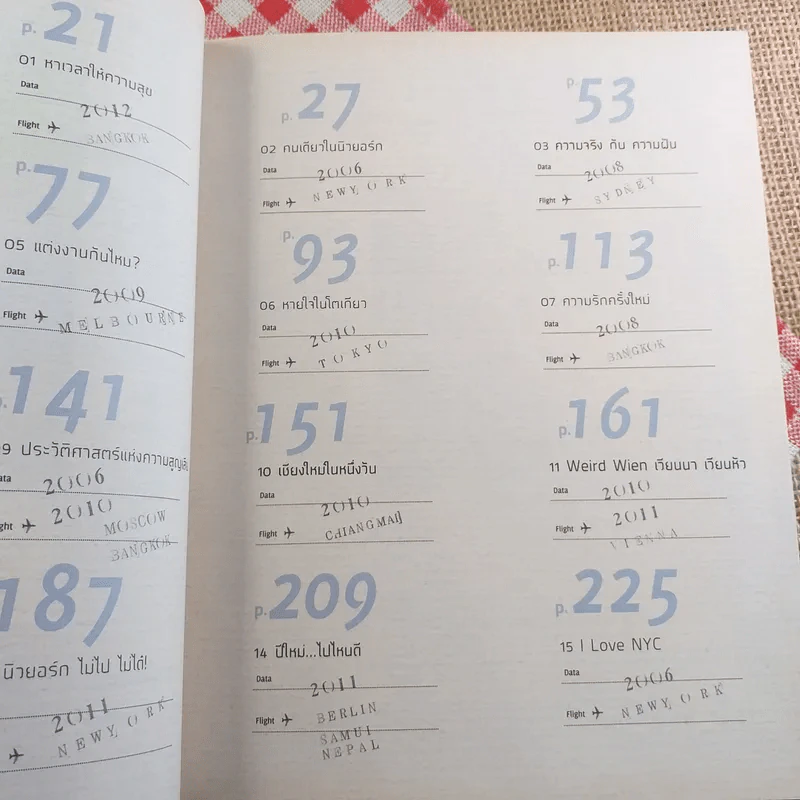 p.21
01 หาเวลาให้ความสุข
Data
2012
Flight
BANGKOK
p.77
05 แต่งงานกันไหม?
Data
2009
Flight
MELBOURNE
.141
9 ประวัติศาสตร์แห่งความสูญเสีย
ata
2006
ght
2010
MOSCOW
BANGKOK
187
นิวยอร์ก ไม่ไป ไม่ได้!
2011
NEWYORK
p.27
02 คนเดียวในนิวยอร์ก
Data
2006
Flight
NEWYORK
p.53
03 ความจริง กับ ความฝัน
Data
2008
Flight
SYDNEY
p.93
06 หายใจในโตเกียว
Data
2010
Flight
TOKYO
p.113
07 ความรักครั้งใหม่
Data
2008
Flight
BANGKOK
p.151
10 เชียงใหม่ในหนึ่งวัน
Data
2010
Flight
CHIANGMAI
p.161
11 Weird Wien เวียนนา เวียนหัว
Data
2010
Flight
2011
VIENNA
p.209
14 ปีใหม่...ไปไหนดี
Data
2011
Flight
BERLIN
SAMUI
NEPAL
p.225
15 I Love NYC
Data
2006
Flight
NEWYORK